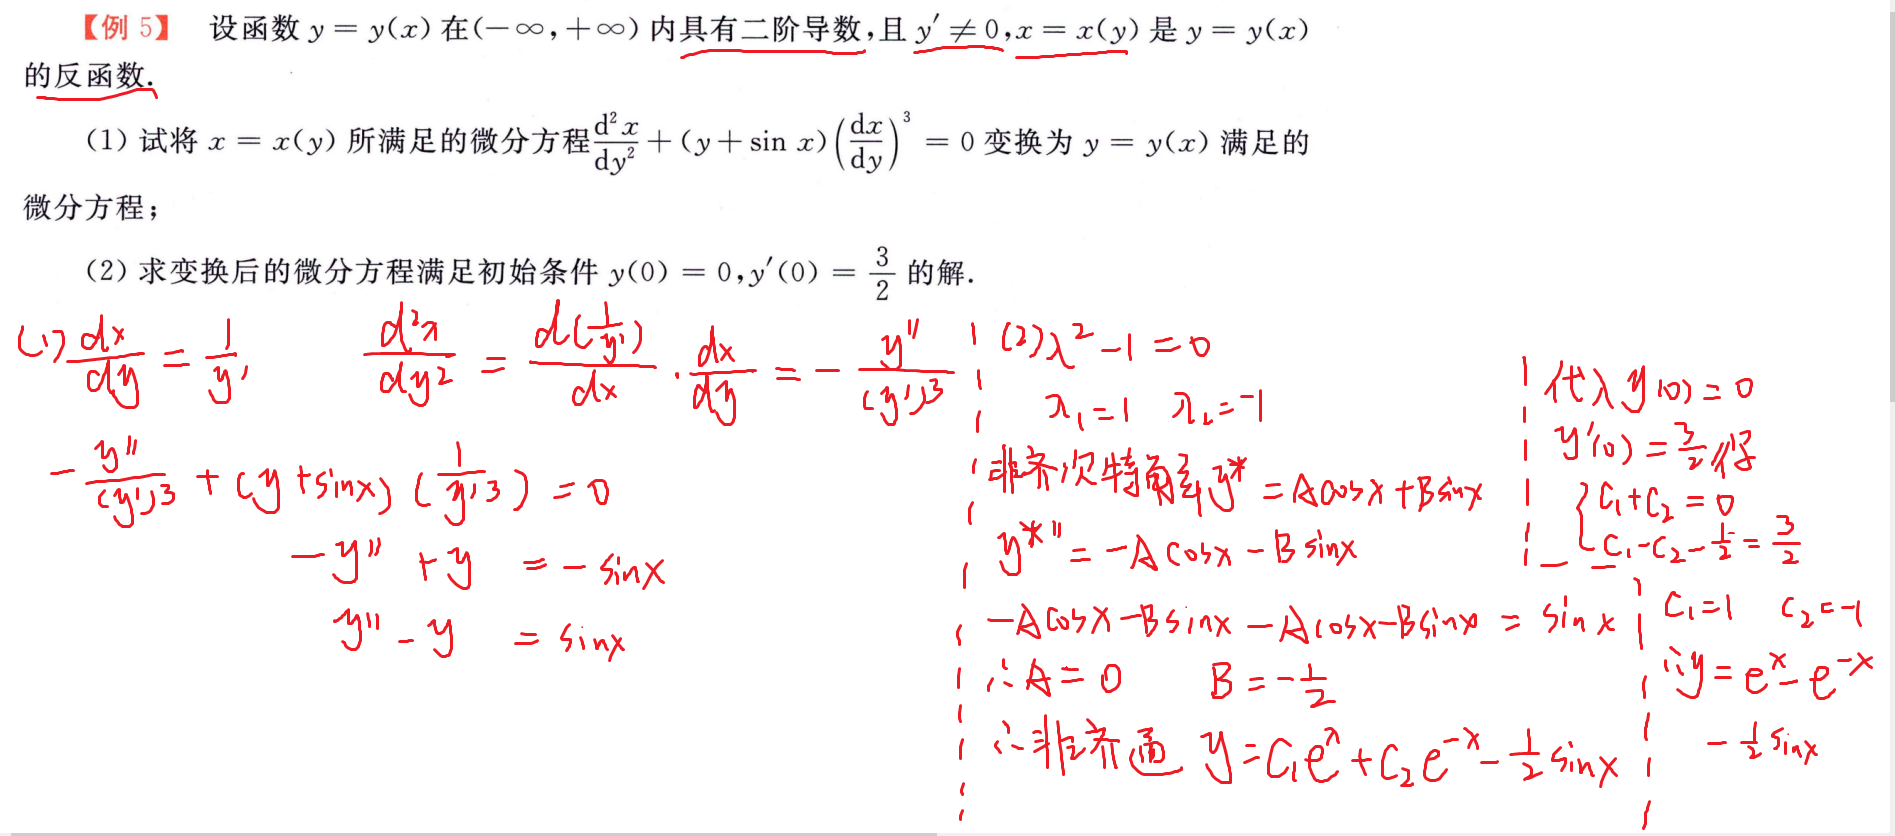 【例 5】 设函数 y = y(x) 在(−∞,+∞) 内具有二阶导数,且 y′ ≠ 0,x = x(y) 是 y = y(x)
的反函数.
(1) 试将 x = x(y) 所满足的微分方程 d²x/dy² + (y + sin x)(dx/dy)³ = 0 变换为 y = y(x) 满足的
微分方程;
(2) 求变换后的微分方程满足初始条件 y(0) = 0,y′(0) = 3/2 的解.
(1) dx/dy = 1/y′  d²x/dy² = d(1/y′)/dx · dx/dy = − y″/(y′)³
− y″/(y′)³ + (y + sinx) (1/y′³) = 0
− y″ + y = − sinx
y″ − y = sinx
(2) λ² − 1 = 0
λ₁ = 1  λ₂ = −1
非齐次特解 y* = Acosx + Bsinx
y*″ = −Acosx − Bsinx
−Acosx − Bsinx − Acosx − Bsinx = sinx
∴ A = 0  B = −1/2
∴ 非齐通 y = C₁eˣ + C₂e⁻ˣ − 1/2 sinx
代入 y(0) = 0
y′(0) = 3/2 得
{ C₁ + C₂ = 0
C₁ − C₂ − 1/2 = 3/2
C₁ = 1  C₂ = −1
∴ y = eˣ − e⁻ˣ
− 1/2 sinx